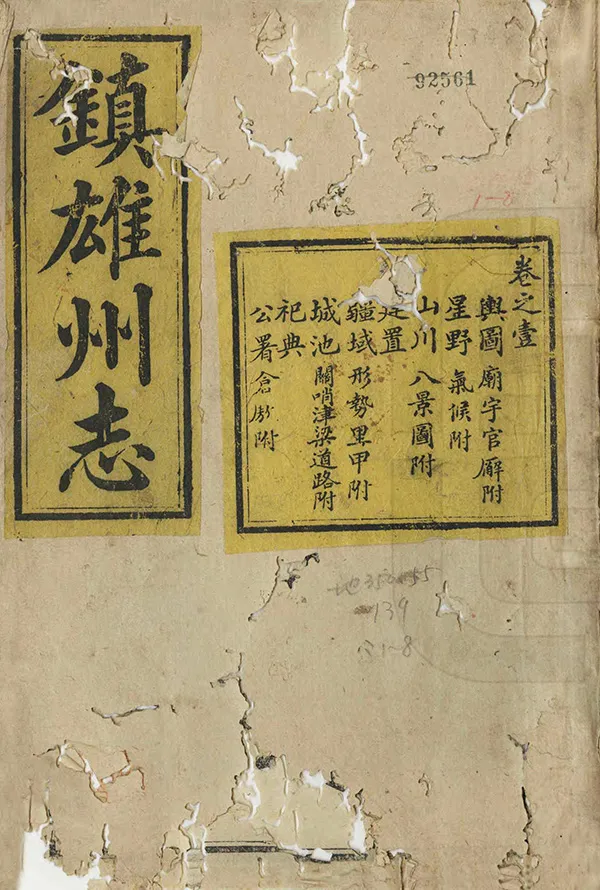 鎮雄州志
92561
1-8
卷之壹
輿圖 廟宇官廨附
星野 氣候附
山川 八景圖附
置
疆域 形勢里甲附
城池 關哨津梁道路附
祀典
公署 倉廒附
139
1-8